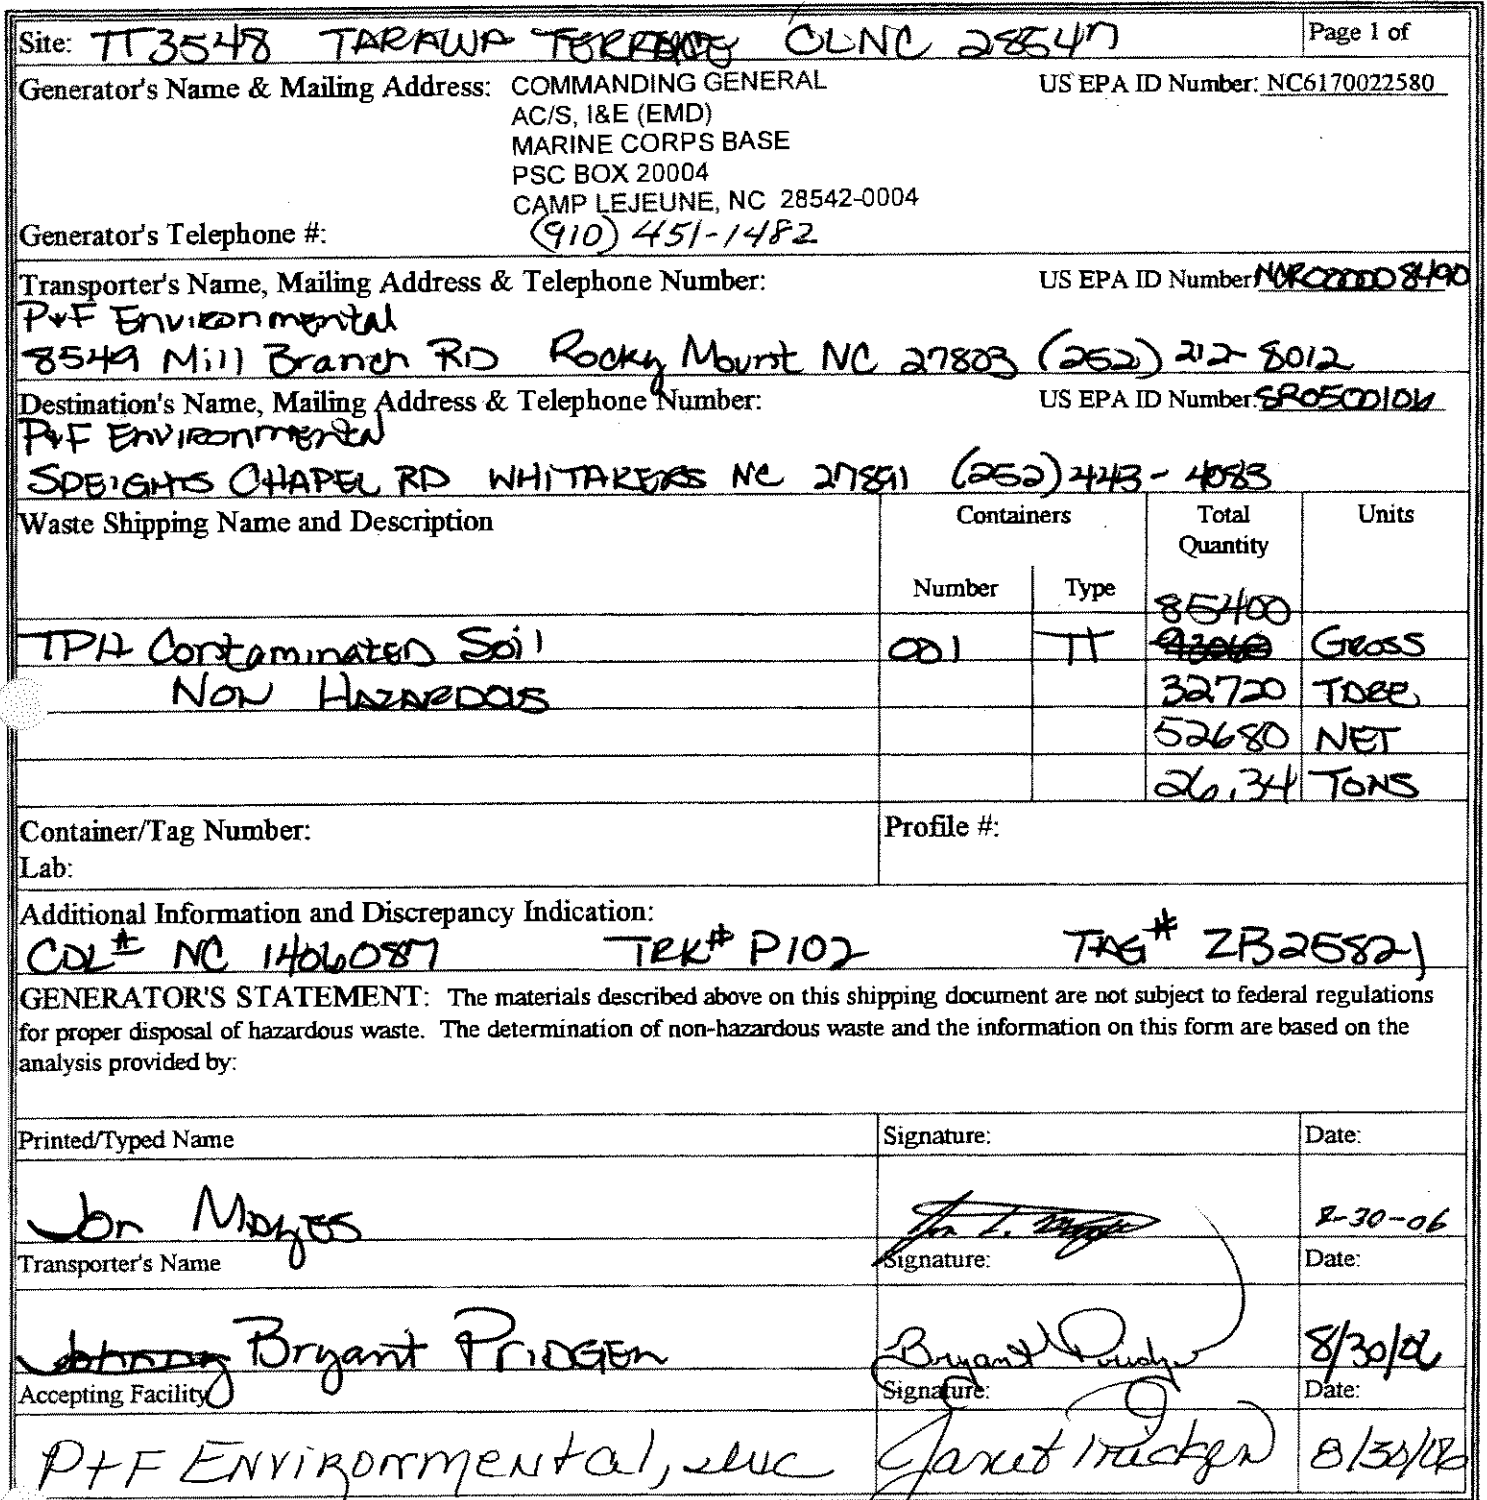 Site: TT3548 TARAWA TERRACE CLNC 28547
Page 1 of
Generator's Name & Mailing Address: COMMANDING GENERAL
US EPA ID Number: NC6170022580
AC/S, I&E (EMD)
MARINE CORPS BASE
PSC BOX 20004
CAMP LEJEUNE, NC 28542-0004
Generator's Telephone #: (910) 451-1482
Transporter's Name, Mailing Address & Telephone Number:
US EPA ID Number NCR000008490
P+F Environmental
8549 Mill Branch RD Rocky Mount NC 27803 (252) 212-8012
Destination's Name, Mailing Address & Telephone Number:
US EPA ID Number: SR0500106
P+F Environmental
SPEIGHTS CHAPEL RD WHITAKERS NC 27891 (252) 443-4083
Waste Shipping Name and Description
Containers
Total Quantity
Units
Number
Type
85400
TPH Contaminated Soil 001 TT Gross
Non Hazardous 32720 TARE
52680 NET
26.34 TONS
Container/Tag Number:
Profile #:
Lab:
Additional Information and Discrepancy Indication:
CDL# NC 1406087 TRK# P102 TAG# ZB25821
GENERATOR'S STATEMENT: The materials described above on this shipping document are not subject to federal regulations
for proper disposal of hazardous waste. The determination of non-hazardous waste and the information on this form are based on the
analysis provided by:
Printed/Typed Name
Signature:
Date:
Jon Mayes
8-30-06
Transporter's Name
Signature:
Date:
Johnny Bryant Pridgen
Bryant Pridgen
8/30/06
Accepting Facility
Signature:
Date:
P+F Environmental, Inc
Janet
8/30/06